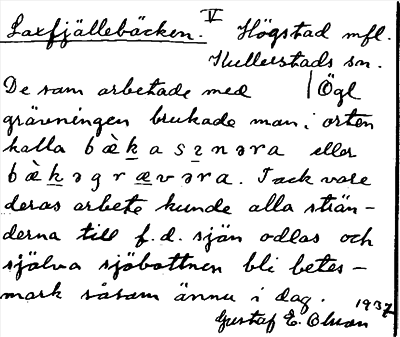 V
Laxfjällebäcken. Högstad mfl.
Kullerstads sn.
De som arbetade med Ögl
grävningen brukade man i orten
kalla bæ̀kasznəra eller
bæ̀kəgrævəra. Tack vare
deras arbete kunde alla strän-
derna till f.d. sjön odlas och
själva sjöbottnen bli betes-
mark såsom ännu i dag.
1937
Gustaf E. Olson